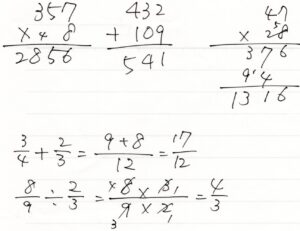 357
× 4 8
2856
432
+ 109
541
47
5
× 28
376
94
1316
3/4 + 2/3 = 9+8/12 = 17/12
8/9 ÷ 2/3 = 4 8 × 3 1 / 3 9 × 2 1 = 4/3